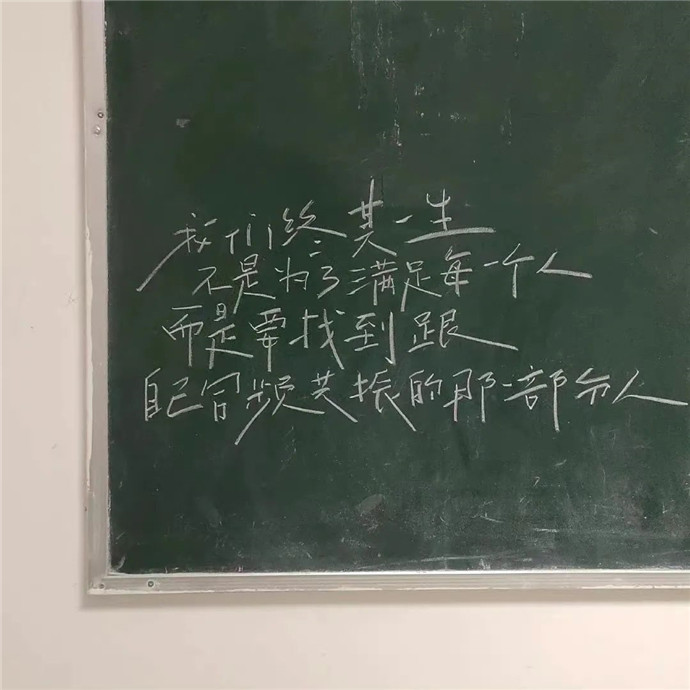 我们终其一生
不是为了满足每一个人
而是要找到跟
自己同频共振的那一部分人